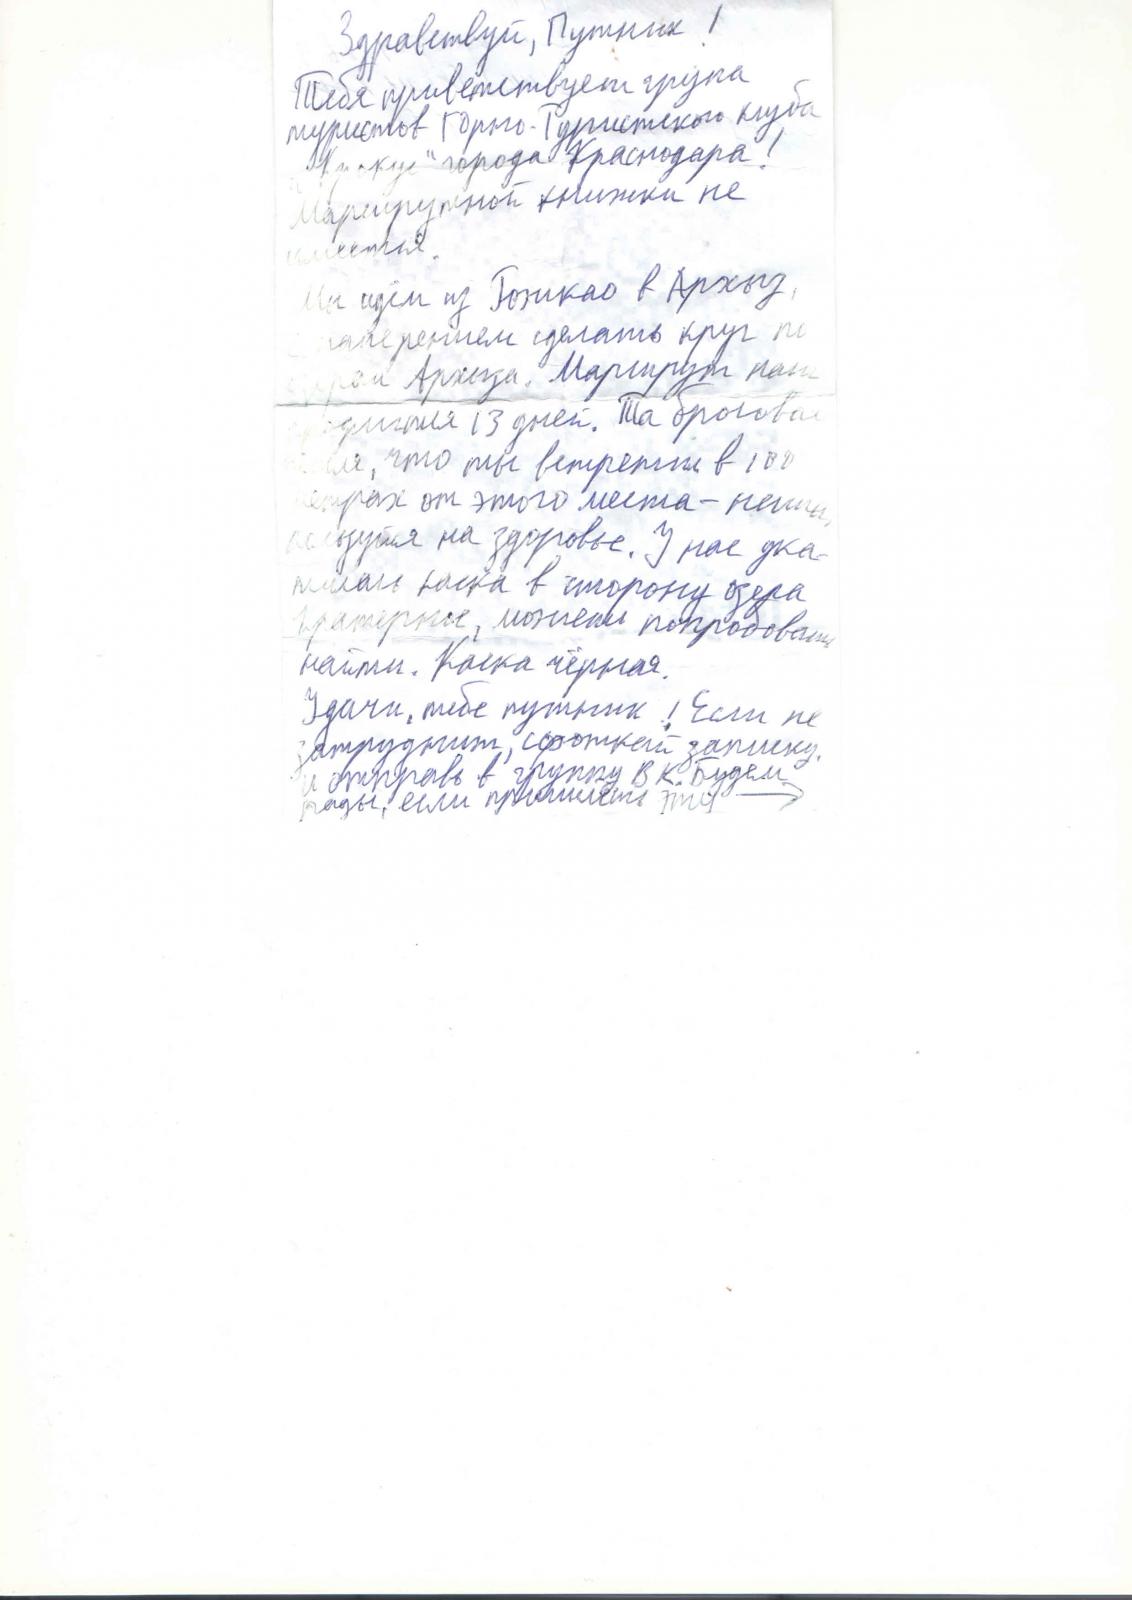 Здравствуй, Путник!
Тебя приветствует група
туристов Горно-Туристского клуба
"Крокус" города Краснодара!
Маршрутной книжки не
имеется.
Мы идём из в Архыз,
с намерением сделать круг по
Архыза. Маршрут наш
продлится 13 дней. Та
что ты встретил в 100
метрах от этого места -
пользуйся на здоровье. У нас ука-
тилась каска в сторону озера
Кратерное, можешь попробовать
найти. Каска чёрная.
Удачи, тебе путник! Если не
затруднит, сфоткай записку.
и отправь в группу ВК. Будем
рады, если